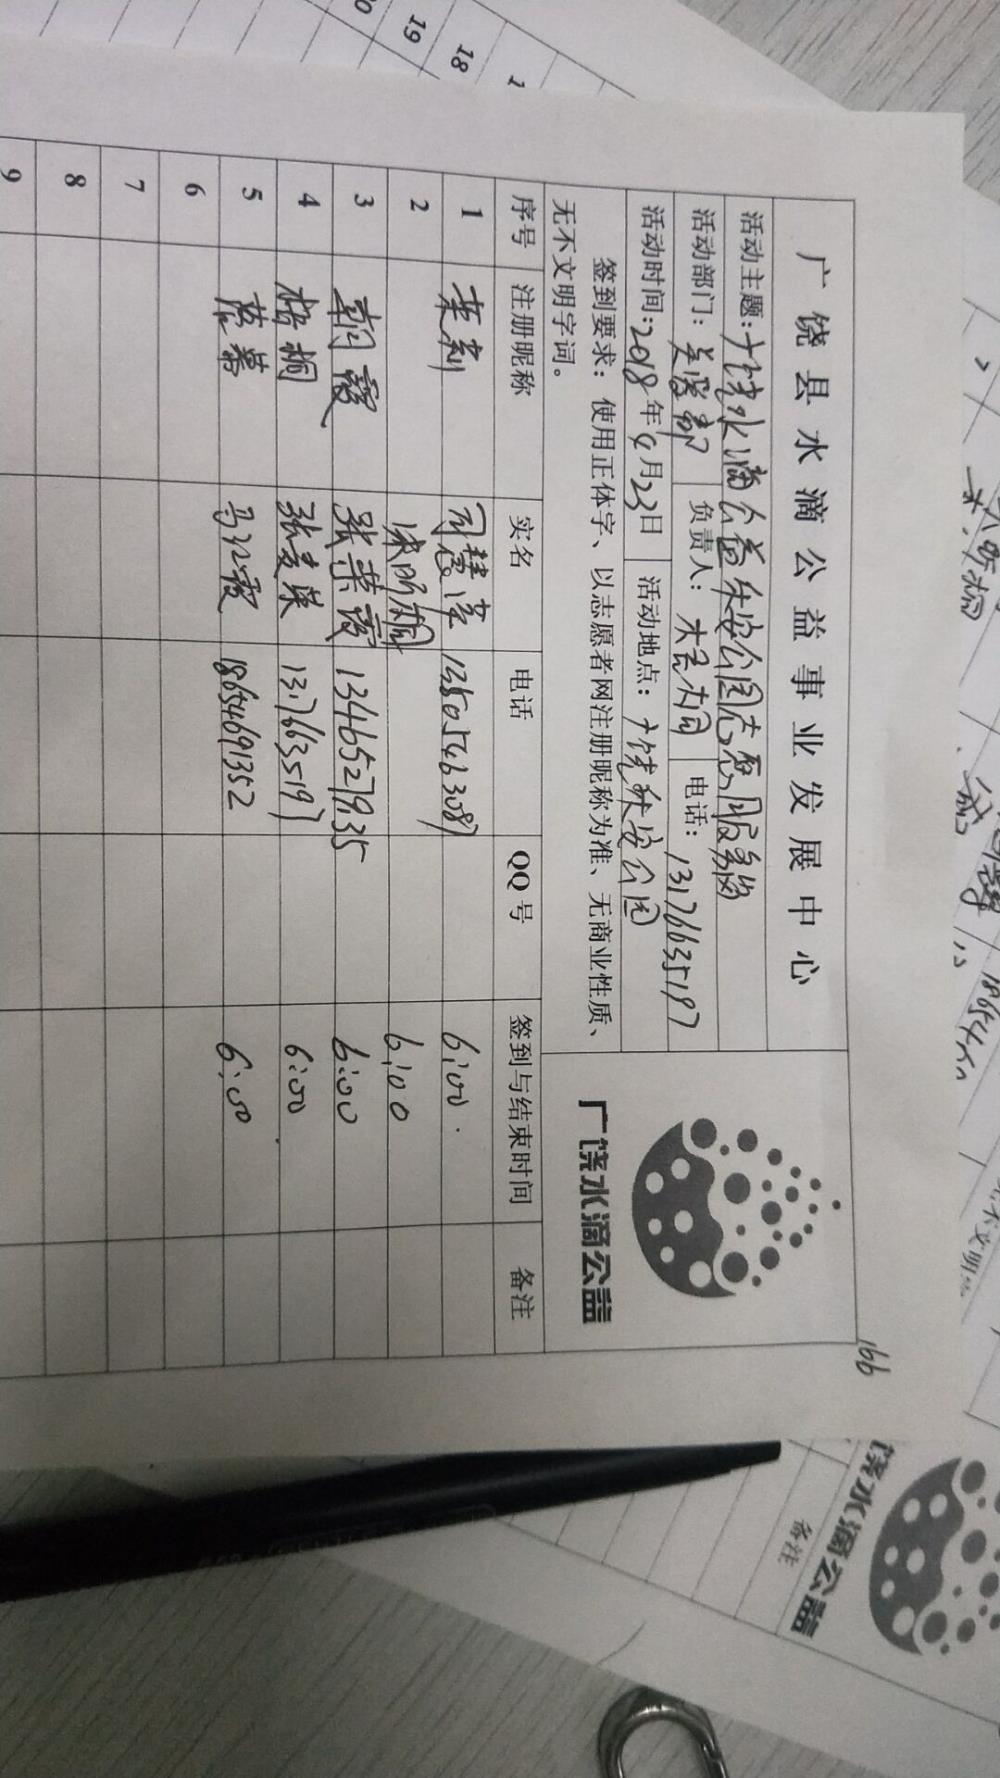 166
广饶县水滴公益事业发展中心
活动主题：广饶水滴公益乐安公园志愿服务岗
活动部门： 负责人： 电话：13176635197
活动时间：2018年9月23日 活动地点：广饶乐安公园
签到要求：使用正体字、以志愿者网注册昵称为准、无商业性质、
无不文明字词。
广饶水滴公益
序号 注册昵称 实名 电话 QQ号 签到与结束时间 备注
1 茉莉 13505463087 6:00
2 6:00
3 朝霞 张荣霞 13465279135 6:00
4 梧桐 张爱英 13176635197 6:00
5 蔷薇 马红霞 18654691352 6:00
6
7
8
9
18
19
广饶水滴公益
备注